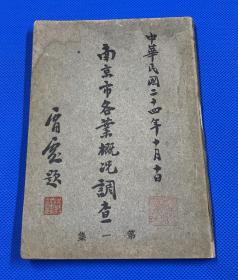 中華民國二十四年十月十日
南京市各業概況調查
第一集
題